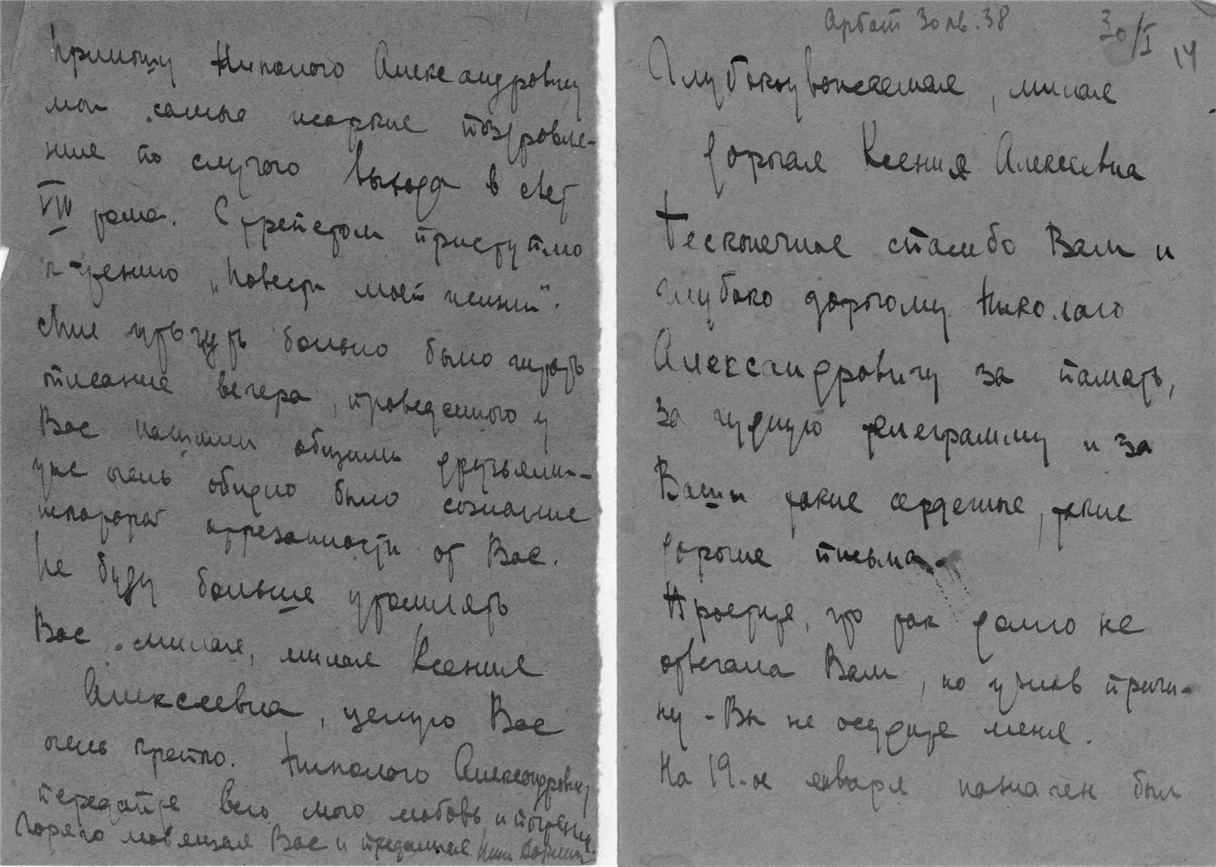 Приношу Николаю Александровичу
мои самые искрение поздравле-
ния по случаю выхода в свет
VIII тома. С трепетом приступлю
к чтению „Повести моей жизни".
Мне чуть чуть больно было читать
описание вечера, проведенного у
Вас нашими общими друзьями -
уже очень обидно было сознание
некоторой отрезанности от Вас.
Не буду больше утомлять
Вас, милая, милая Ксения
Алексеевна, целую Вас
очень крепко. Николаю Александровичу
передайте всю мою любовь и
Горячо любящая Вас и преданная
Арбат 30 кв. 38
30/I 14
Глубокоуважаемая, милая
дорогая Ксения Алексеевна
Бесконечное спасибо Вам и
глубоко дорогому Николаю
Александровичу за память,
за чудную телеграмму и за
Ваши такие сердечные, такие
дорогие письма.
Простите, что так долго не
отвечала Вам, но узнав причи-
ну - Вы не осудите меня.
На 19-ое января назначен был